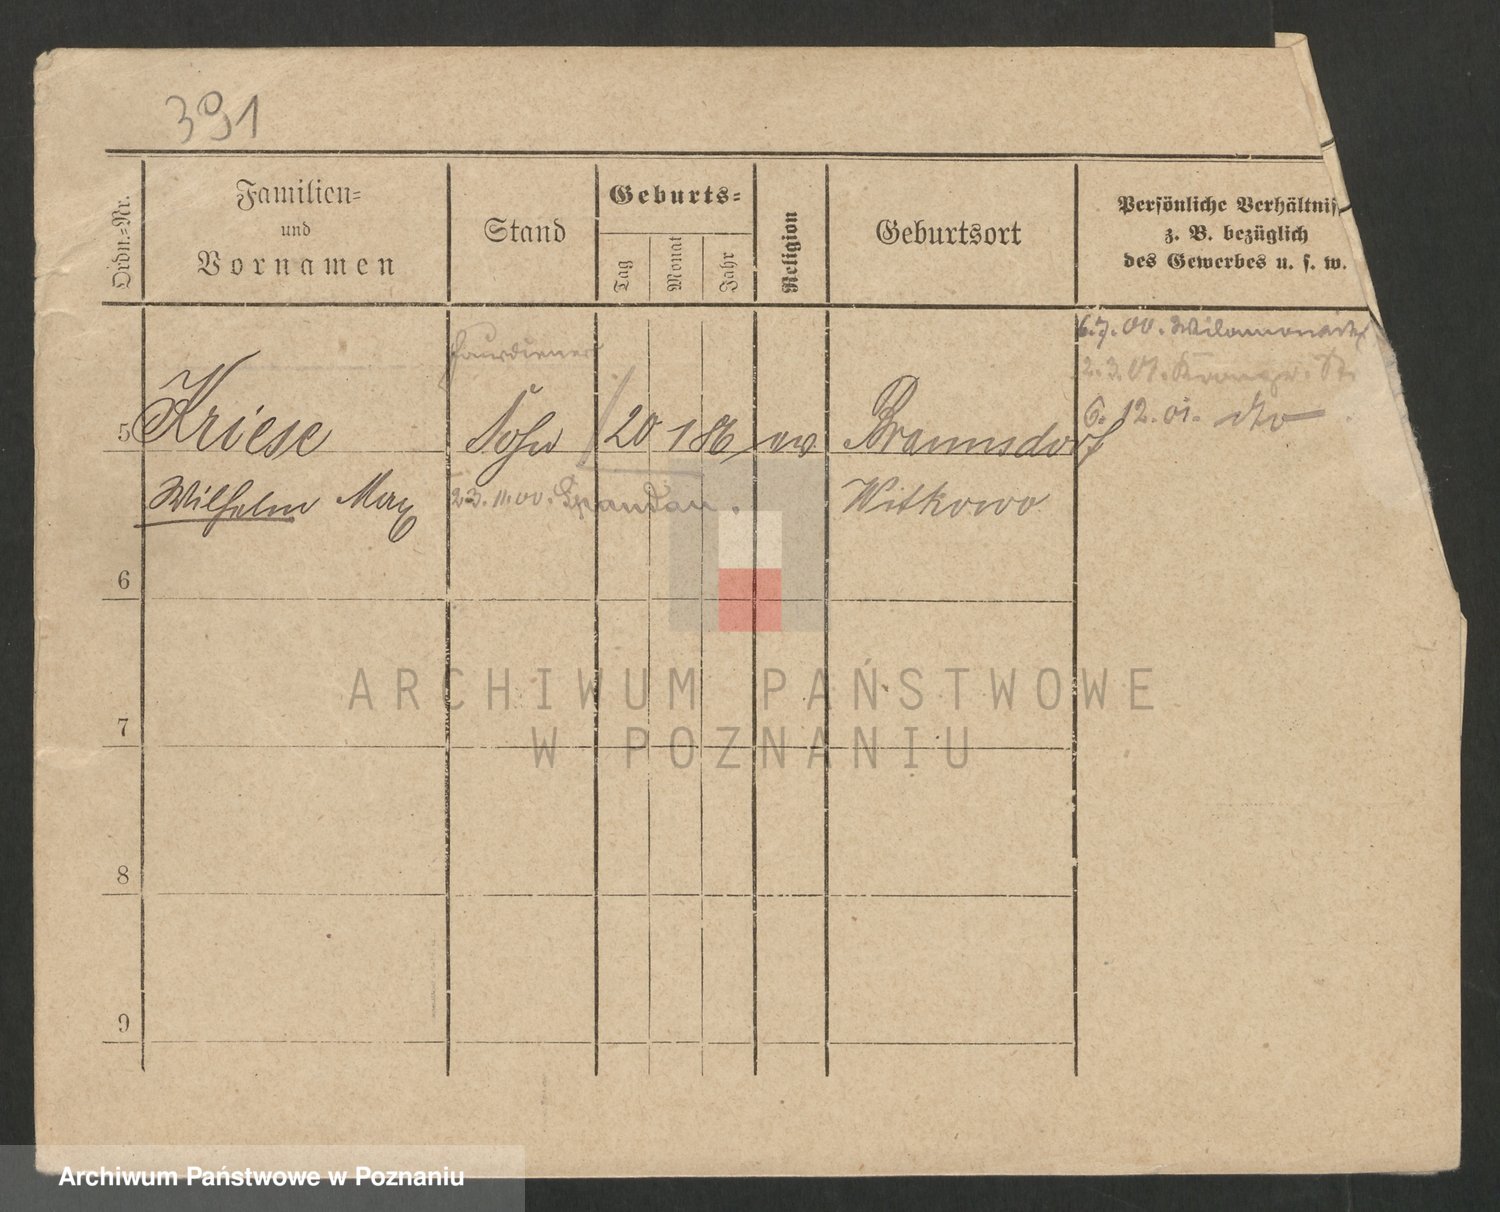 391
Ordn.-Nr.
Familien-
und
Vornamen
Stand
Geburts-
Tag
Monat
Jahr
Religion
Geburtsort
Persönliche Verhältniss
z. B. bezüglich
des Gewerbes u. s. w.
Hausdiener
6.7.00.
2.3.01.
5 Kriese Sohn 20 1 86 ev Braunsdorf
6.12.01. dto
Wilhelm Max
23.11.00. Spandau.
Witkowo
6
7
8
9
ARCHIWUM PAŃSTWOWE
W POZNANIU
Archiwum Państwowe w Poznaniu